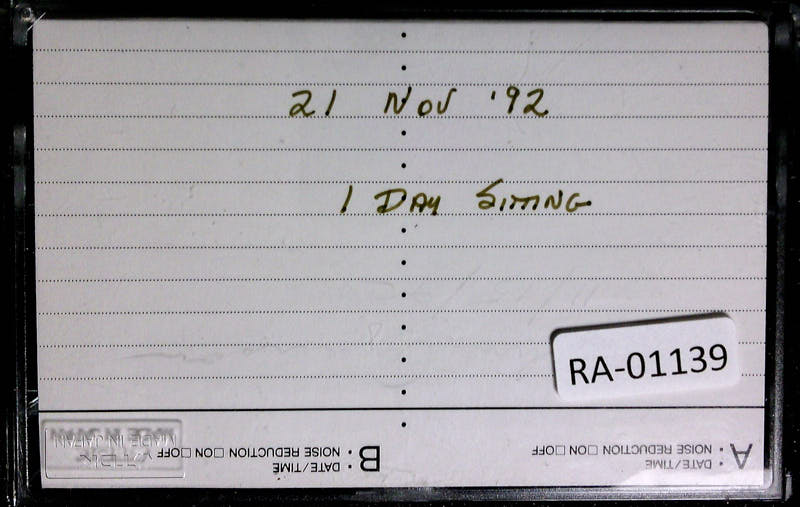 21 NOV '92
1 DAY SITTING
RA-01139
A
• DATE/TIME
• NOISE REDUCTION □ON □OFF
B
• DATE/TIME
• NOISE REDUCTION □ON □OFF
MADE IN JAPAN